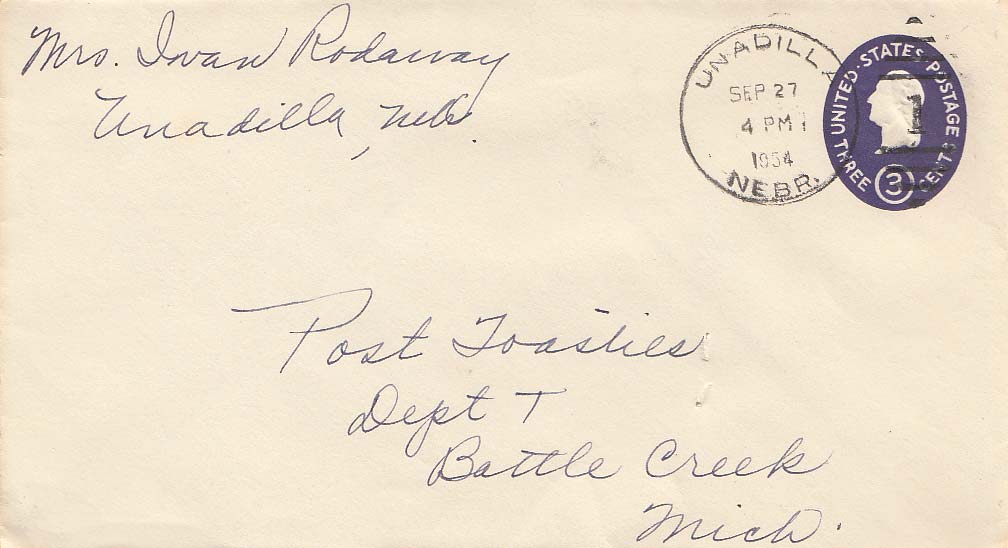 Mrs. Ivan Rodaway
Unadilla, Neb.
UNADILLA
SEP 27
4 PM
1954
NEBR.
UNITED STATES POSTAGE
THREE 3 CENTS
1
Post Toasties
Dept T
Battle Creek
Mich.